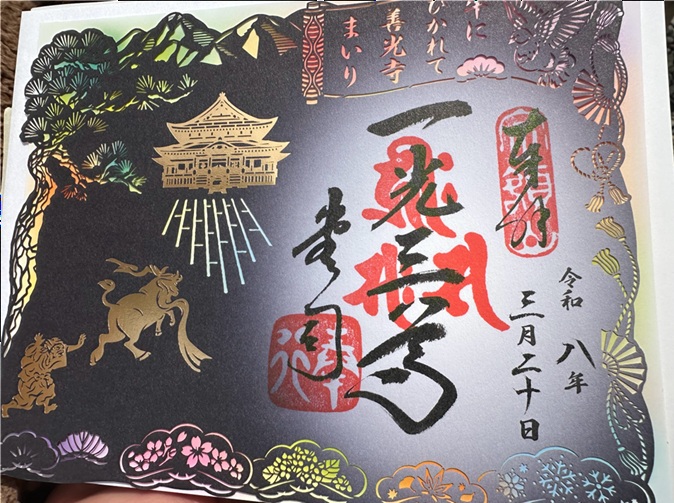 牛に
ひかれて
善光寺
まいり
奉拝
令和八年
三月二十日
一光三尊
堂司